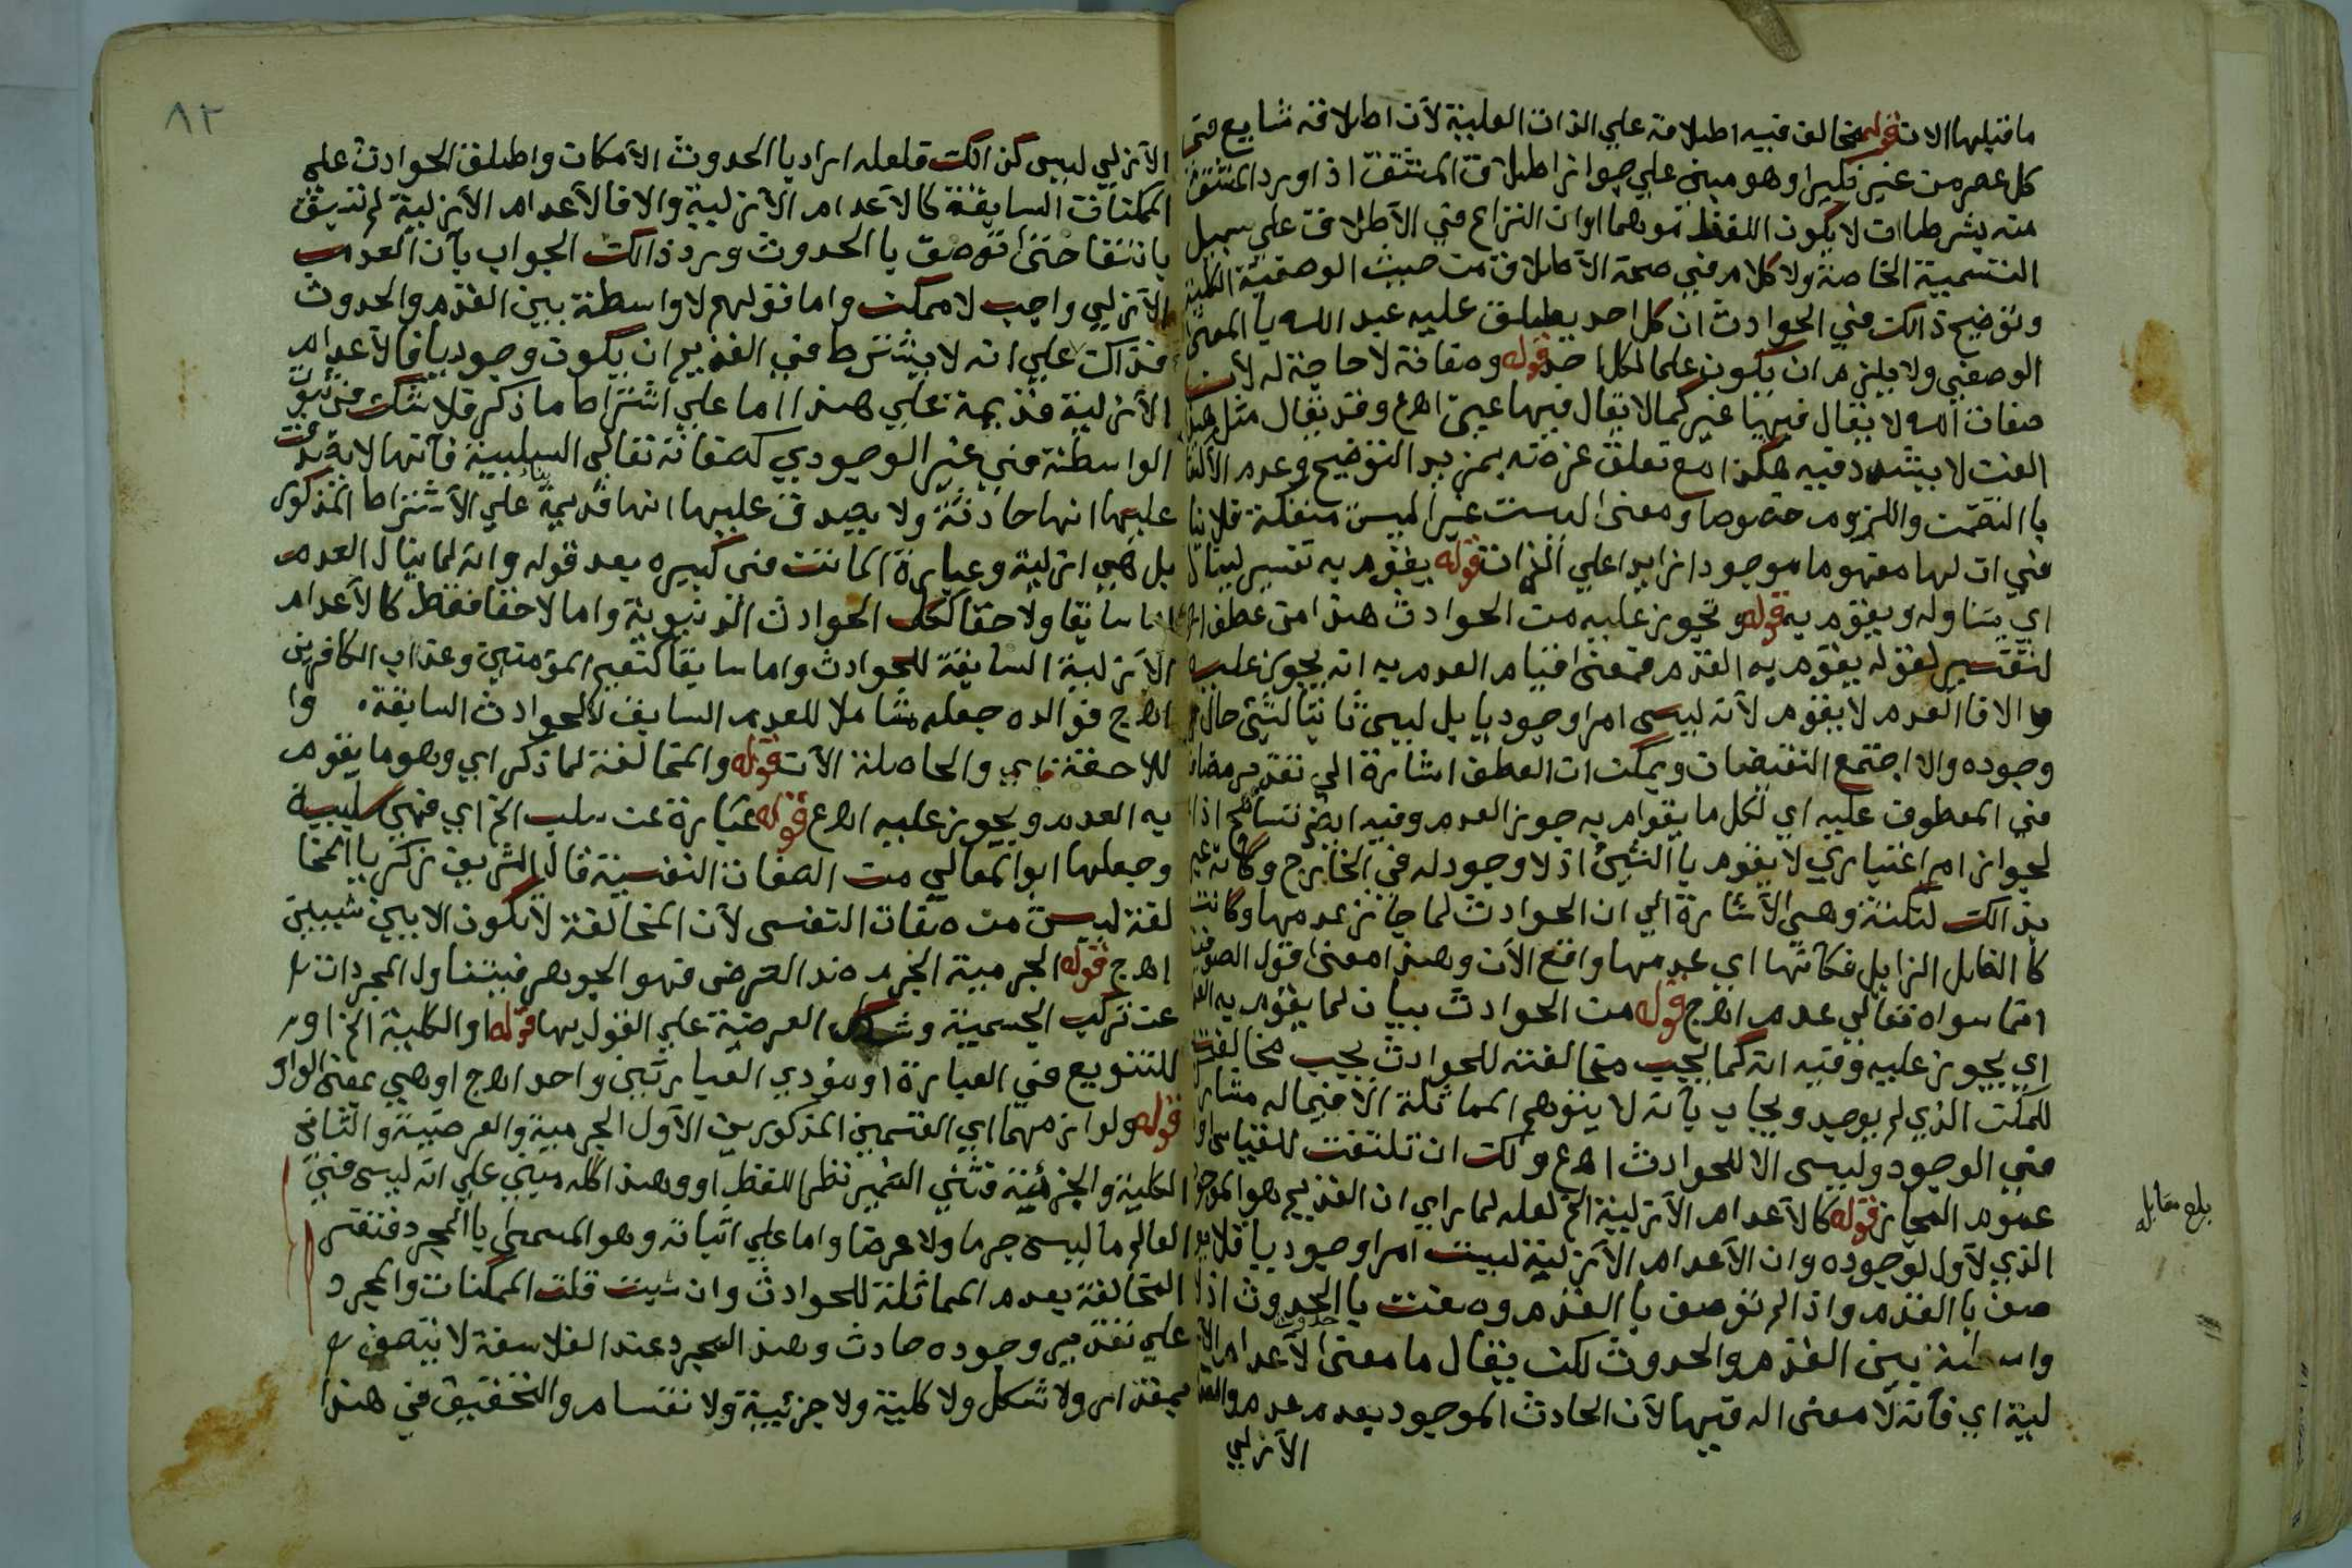 ما قبلها الان قوله مخالف فيه اطلاقه علي الذات العلية لأن اطلاقه شايع في
كل عصر من غير نكير وهو مبني علي جواز اطلاق المشتق اذا ورد المشتق
منه بشرط ان لا يكون اللفظ موهما او ان النزاع في الاطلاق علي سبيل
التسمية الخاصة ولا كلام في صحة الاطلاق من حيث الوصفية الكلية
وتوضيح ذالك في الحوادث ان كل احد يطلق عليه عبد الله با المعنى
الوصفي ولا يلزم ان يكون علما لكل احد قوله وصفاته لا حاجة له لأن
صفات الله لا يقال فيها غير كما لا يقال فيها عين اهع وقد يقال مثل هذا
العنت لا يشدد فيه هكذا مع تعلق غرضه بمزيد التوضيح وعدم
با التضمن واللزوم خصوصا ومعنى ليست غير ليس منفكة فلا
في ان لها مفهوما موجودا زايدا علي الذات قوله يقوم به تفسير لينال
اي يتناوله ويقوم به قوله وتجوز عليه من الحوادث هذا من عطف
لتفسير لقوله يقوم به القدم فمعنى قيام العدم به انه يجوز عليه
والا فا العدم لا يقوم لأنه ليس امرا وجوديا بل ليس ثابتا لشئ حال
وجوده والا اجتمع النقيضان ويمكن ان العطف اشارة الي تقدير مضاف
في المعطوف عليه اي لكل ما يقوم به جوز العدم وفيه ايضا تسامح اذا
لجواز امر اعتباري لا يقوم با الشئ اذ لا وجود له في الخارج وكانه عبر
بذالك لنكتة وهي الاشارة الي ان الحوادث لما جاز عدمها وكانت
كا الظل الزايل فكأنها اي عدمها واقع الآن وهذا معنى قول الصوفية
ما سواه تعالي عدم اهج قوله من الحوادث بيان لما يقوم به العدم
اي يجوز عليه وفيه انه كما يجب مخالفته للحوادث يجب مخالفته
للممكن الذي لم يوجد ويجاب بأنه لا يتوهم المماثلة الا فيما له مشارك
في الوجود وليس الا للحوادث اهع ولك ان تلتفت للقياس او
عموم المجاز قوله كالأعدام الأزلية الخ لعله لما راي ان القديم هو الموجود
الذي لاول لوجوده وان الأعدام الأزلية ليست امرا وجوديا فلا
صف با القدم واذا لم توصف با القدم وصفت با الحدوث اذ لا
واسطة بين القدم والحدوث لكن يقال ما معنى حدوث الأعدام الأز
لية اي فأنه لا معنى اله فيها لأن الحادث الموجود بعد عدم والعدم
الأزلي
بلغ مقابله
٨٢
الأزلي ليس كذالك فلعله اراد با الحدوث الأمكان واطلق الحوادث على
الممكنات السابقة كالأعدام الأزلية والا فالأعدام الأزلية لم تسبق
بانتفا حتى توصف با الحدوث ورد ذالك الجواب بأن العدم
الأزلي واجب لا ممكن واما قولهم لا واسطة بين القدم والحدوث
فذاك علي انه لا يشترط في القديم ان يكون وجوديا فالأعدام
الأزلية قديمة علي هذا اما علي اشتراط ما ذكر فلا شك في ثبوت
الواسطة في غير الوجودي كصفاته تعالي السلبية فأنها لا يصدق
عليها انها حادثة ولا يصدق عليها انها قديمة بناء علي الأشتراط المذكور
بل هي ازلية وعبارة الماتن في كبيره بعد قوله وانه لما ينال العدم
اما سابقا ولاحقا كالحوادث الدنيوية واما لاحقا فقط كالأعدام
الأزلية السابقة للحوادث واما سابقا كنعيم المؤمنين وعذاب الكافرين
اهج فوالده جعله شاملا للعدم السابق للحوادث السابقة وا
للاحقة اي والحاصلة الآن قوله والمخالفة لما ذكر اي وهو ما يقوم
به العدم ويجوز عليه اهع قوله عبارة عن سلب الخ اي فهي سلبية
وجعلها ابو المعالي من الصفات النفسية قال الشريف زكريا المخا
لفة ليس من صفات النفس لأن المخالفة لا تكون الا بين شيئين
اهج قوله الجرمية الجرم ضد العرض فهو الجوهر فيتناول المجردات
عن تركب الجسمية وشكل العرضية علي القول بها قوله او الكلية الخ او
للتنويع في العبارة او مؤدي العبارتين واحد اهج او هي بمعنى الواو
قوله ولوازمهما اي القسمين المذكورين الأول الجرمية والعرضية والثاني
الكلية والجزئية فثني الضمير نظرا للفظ او وهذا كله مبني علي انه ليس في
العالم ما ليس جرما ولا عرضا واما علي اثباته وهو المسمى با المجرد فتفسر
المخالفة بعدم المماثلة للحوادث وان شيت قلت الممكنات والمجرد
علي تقدير وجوده حادث وهذا المجرد عند الفلاسفة لا يتصف
بمقدار ولا شكل ولا كلية ولا جزئية ولا نقسام والتحقيق في هذا